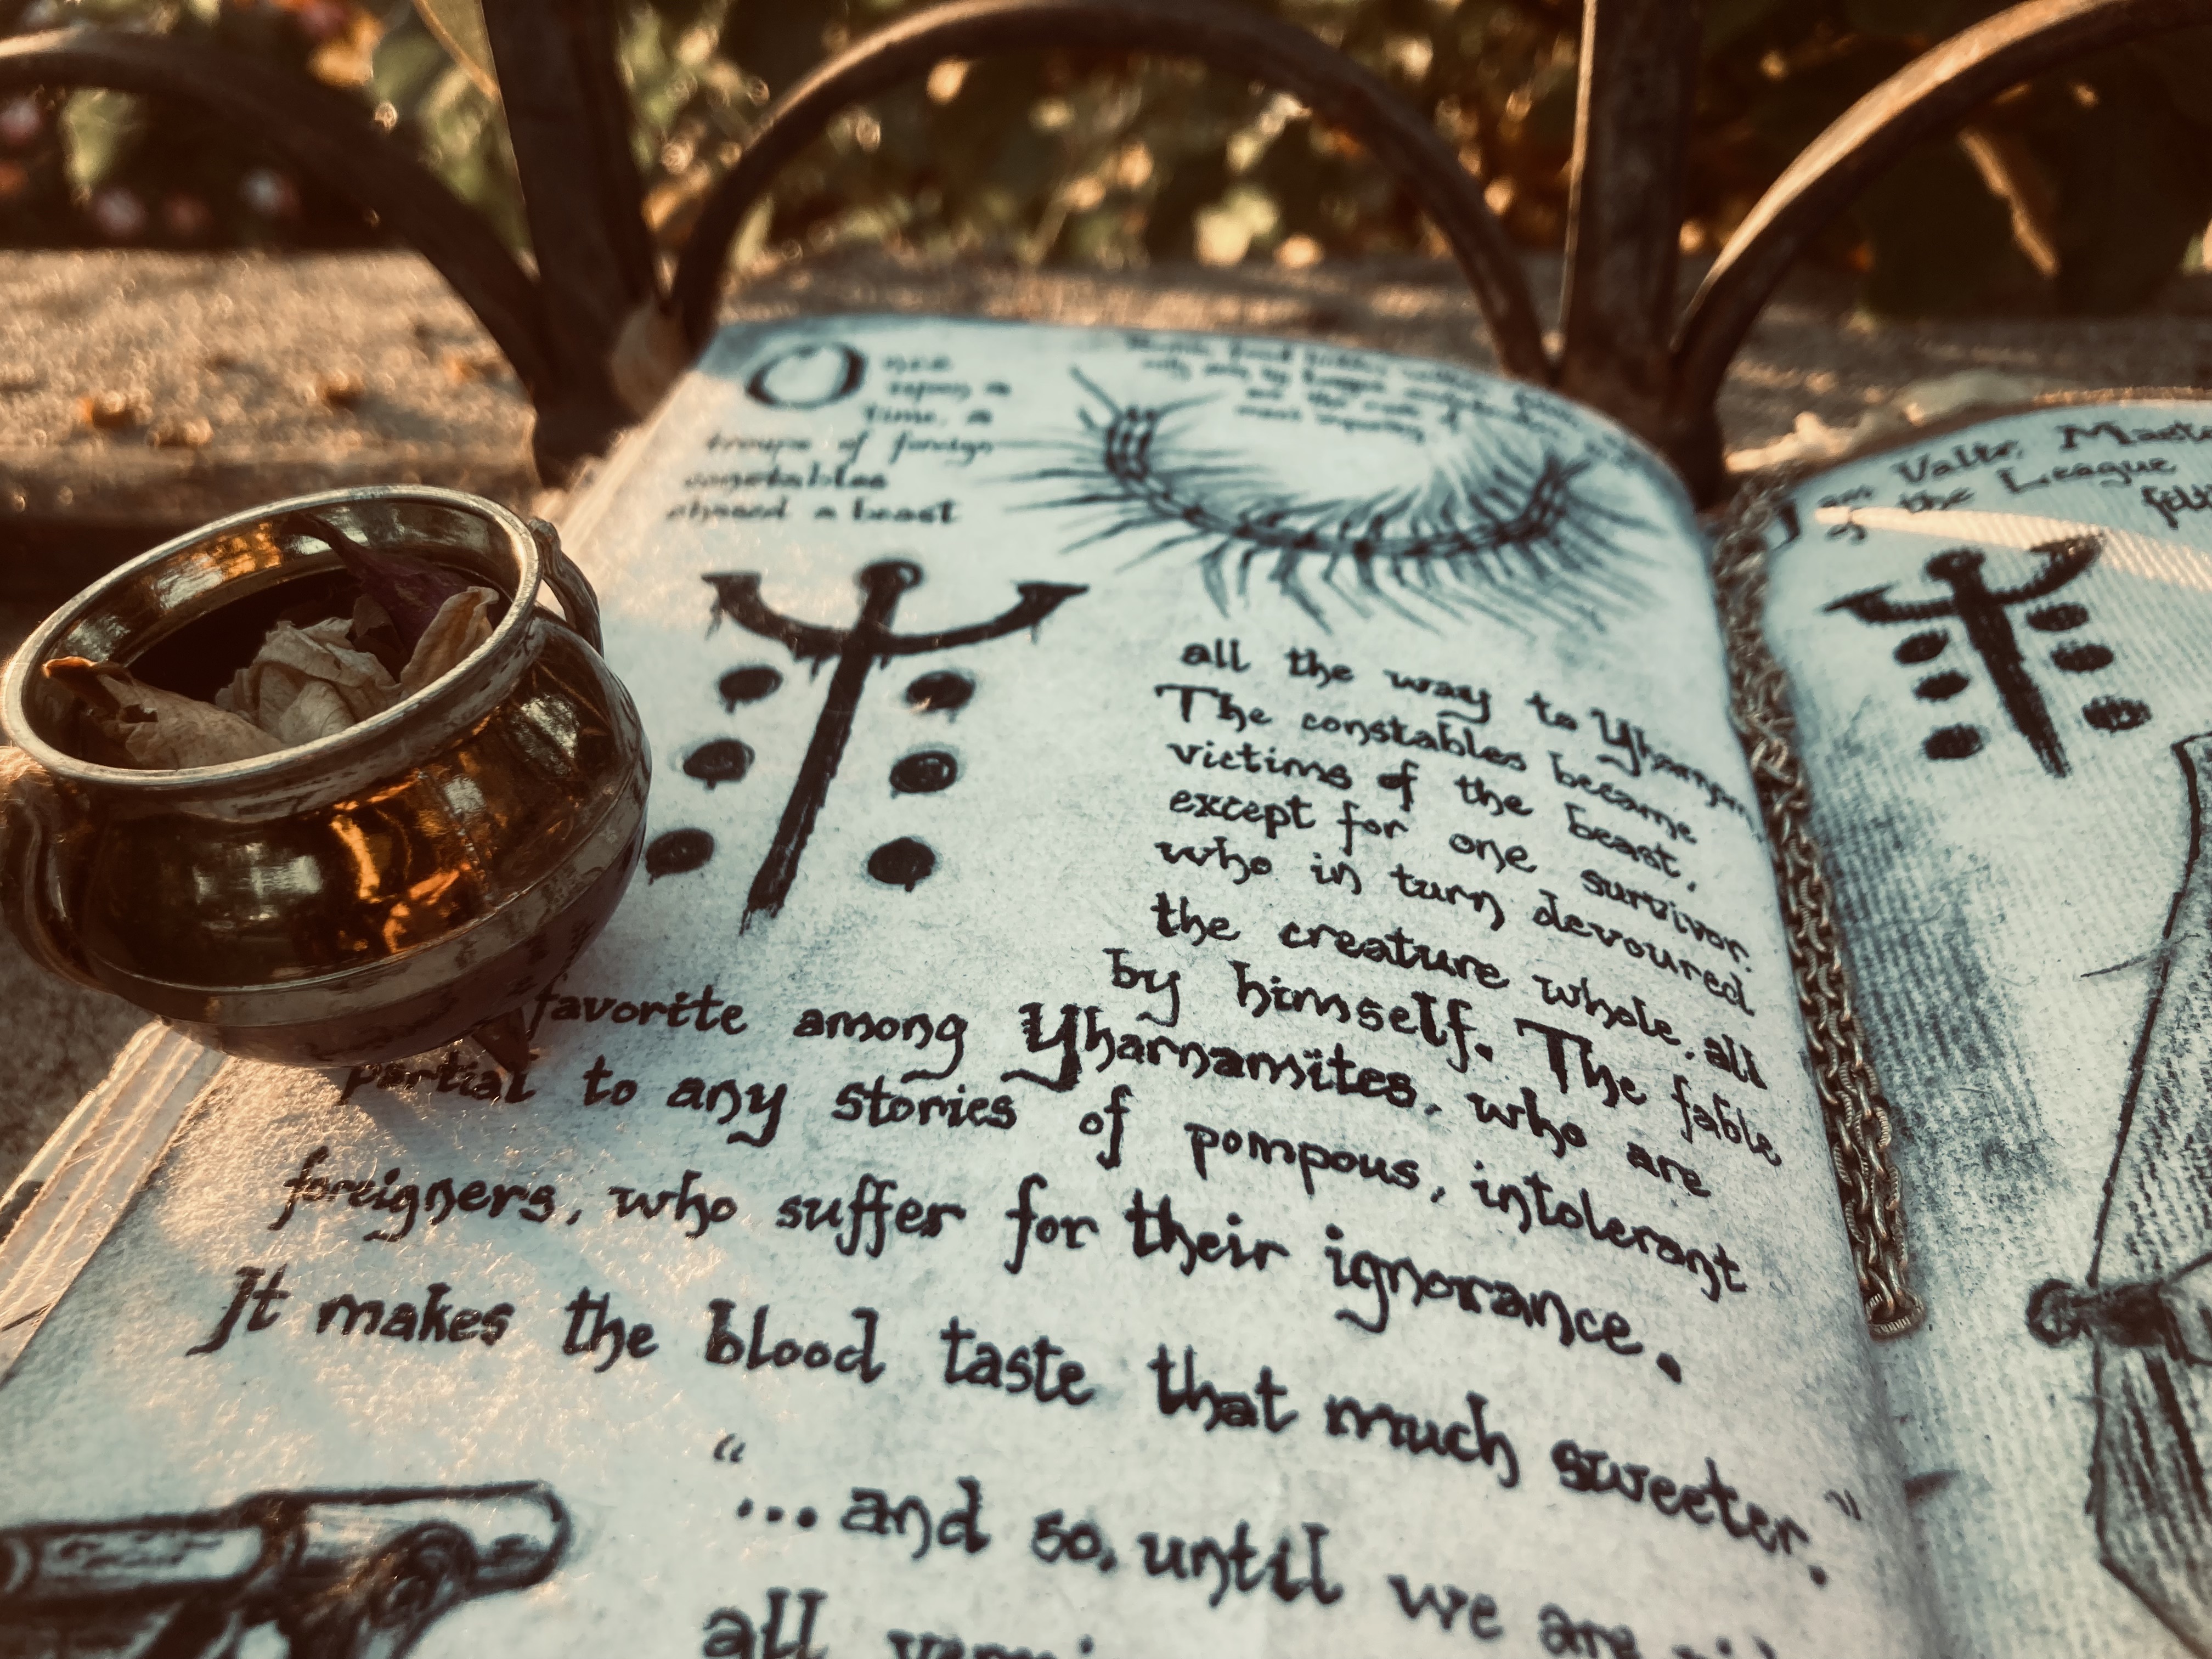 Once
upon a
time, a
troupe of foreign
constables
chased a beast
all the way to Yharnam.
The constables became
victims of the beast,
except for one survivor.
who in turn devoured
the creature whole, all
by himself. The fable
favorite among Yharnamites, who are
partial to any stories of pompous, intolerant
foreigners, who suffer for their ignorance.
It makes the blood taste that much sweeter."
"...and so, until we are
all
Valtr, Master
of the League